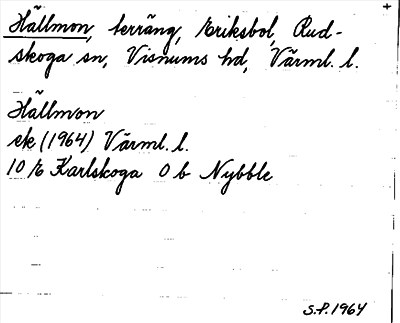 Hällmon, terräng, Eriksbol, Rud-
skoga sn, Visnums hd, Värml. l.
Hällmon
ek (1964) Värml. l.
10 E Karlskoga 0 b Nybble
S.P. 1964